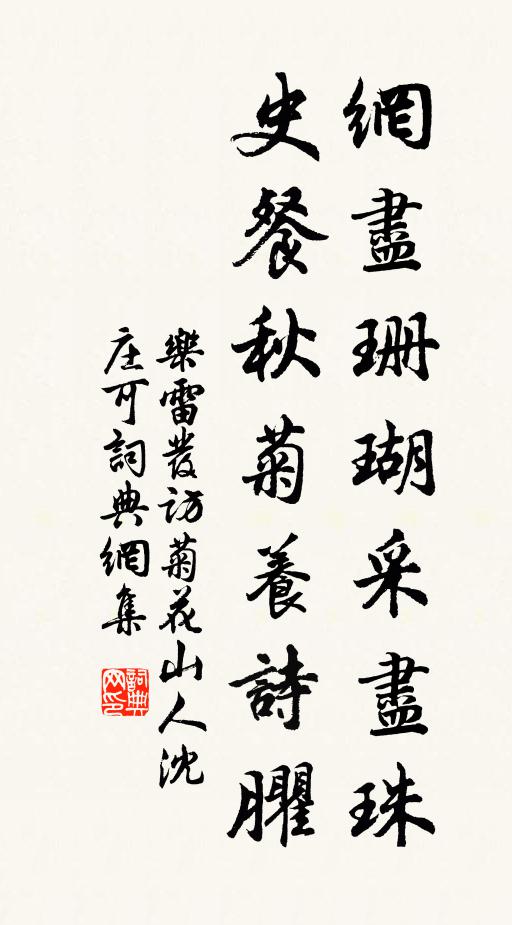 網盡珊瑚采盡珠
史餐秋菊養詩臞
樂雷發訪菊花山人沈
庄可詞典網集
詞典
网印